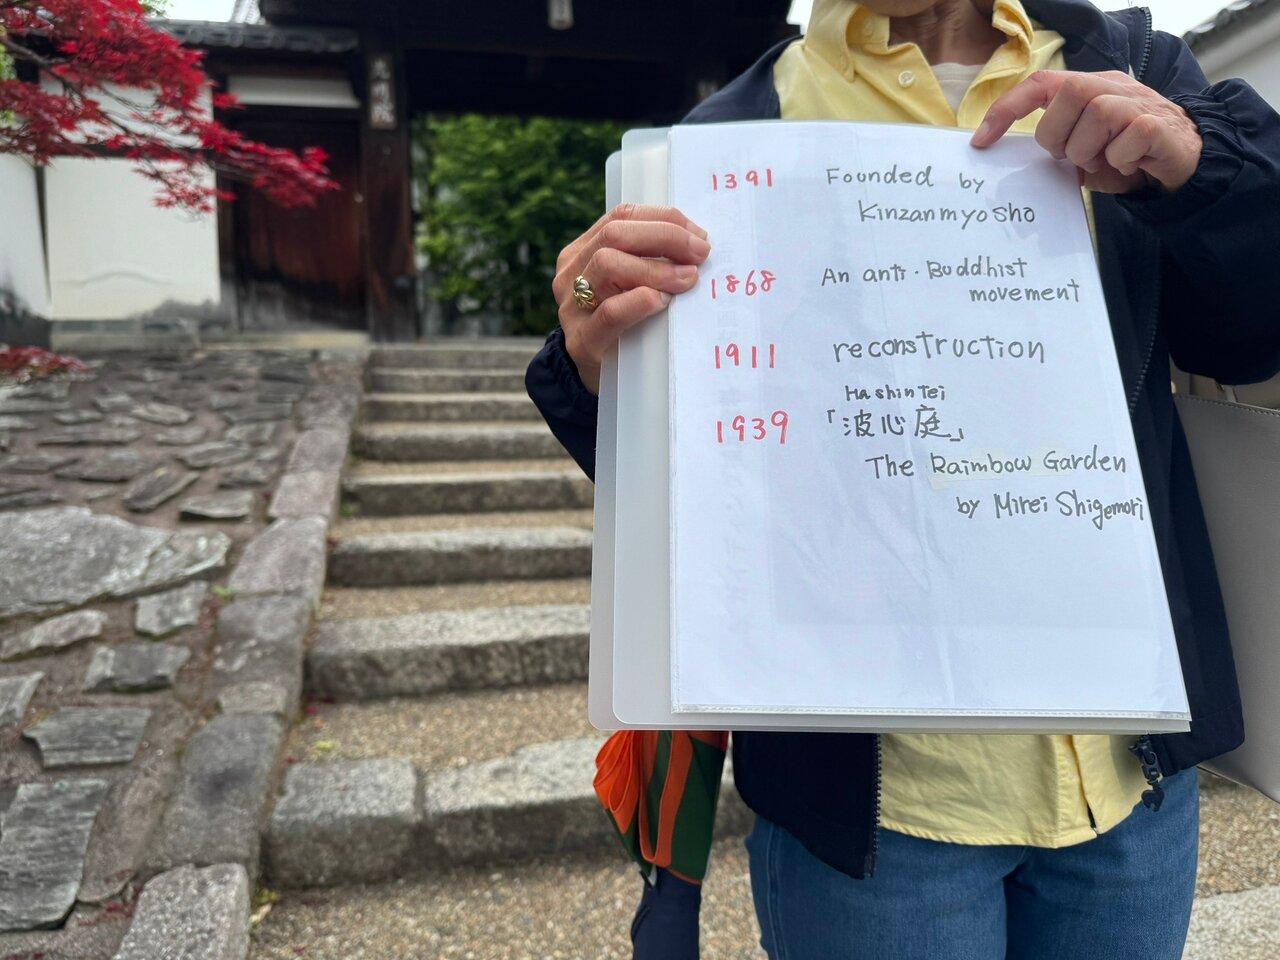 1391 Founded by
Kinzanmyosho
1868 An anti・Buddhist
movement
1911 reconstruction
HashinTei
1939 「波心庭」
The Raimbow Garden
by Mirei Shigemori